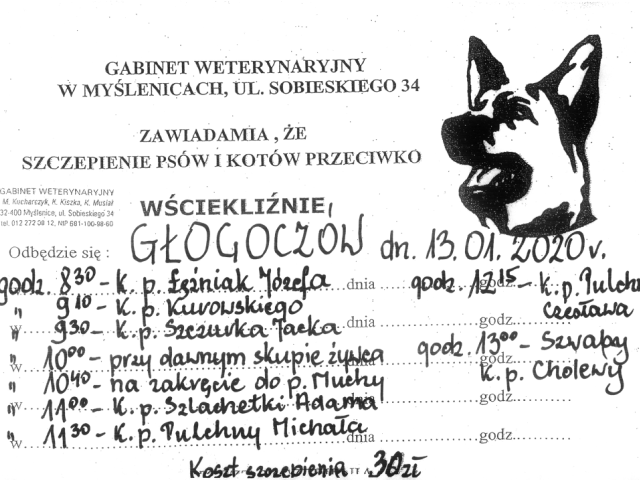 GABINET WETERYNARYJNY
W MYŚLENICACH, UL. SOBIESKIEGO 34
ZAWIADAMIA , ŻE
SZCZEPIENIE PSÓW I KOTÓW PRZECIWKO
GABINET WETERYNARYJNY
M. Kucharczyk, K. Kiszka, K. Musiał
32-400 Myślenice, ul. Sobieskiego 34
tel. 012 272 08 12, NIP 681-100-98-60
WŚCIEKLIŹNIE
Odbędzie się : GŁOGOCZÓW dn. 13.01. 2020 r.
godz. 8 30 - K. p. Łęźniak Józefa dnia godz. 12 15 - K. p. Pulchny
w " 9 10 - K. p. Kurowskiego dnia godz. Czesława
w " 9 30 - K. p. Szczurka Jacka dnia godz.
w " 10 00 - przy dawnym skupie żywca godz. 13 00 - Szwaby
w " 10 40 - na zakręcie do p. Muchy K. p. Cholewy
w " 11 00 - K. p. Szlachetki Adama dnia godz.
w " 11 30 - K. p. Pulchny Michała dnia godz.
Koszt szczepienia 30 zł